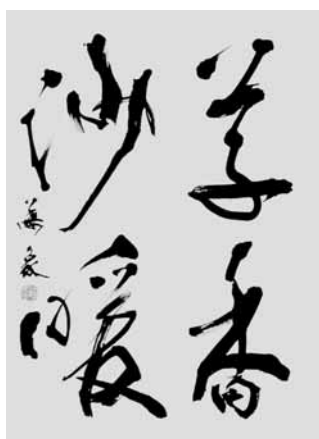 草香
沙暖
萬象